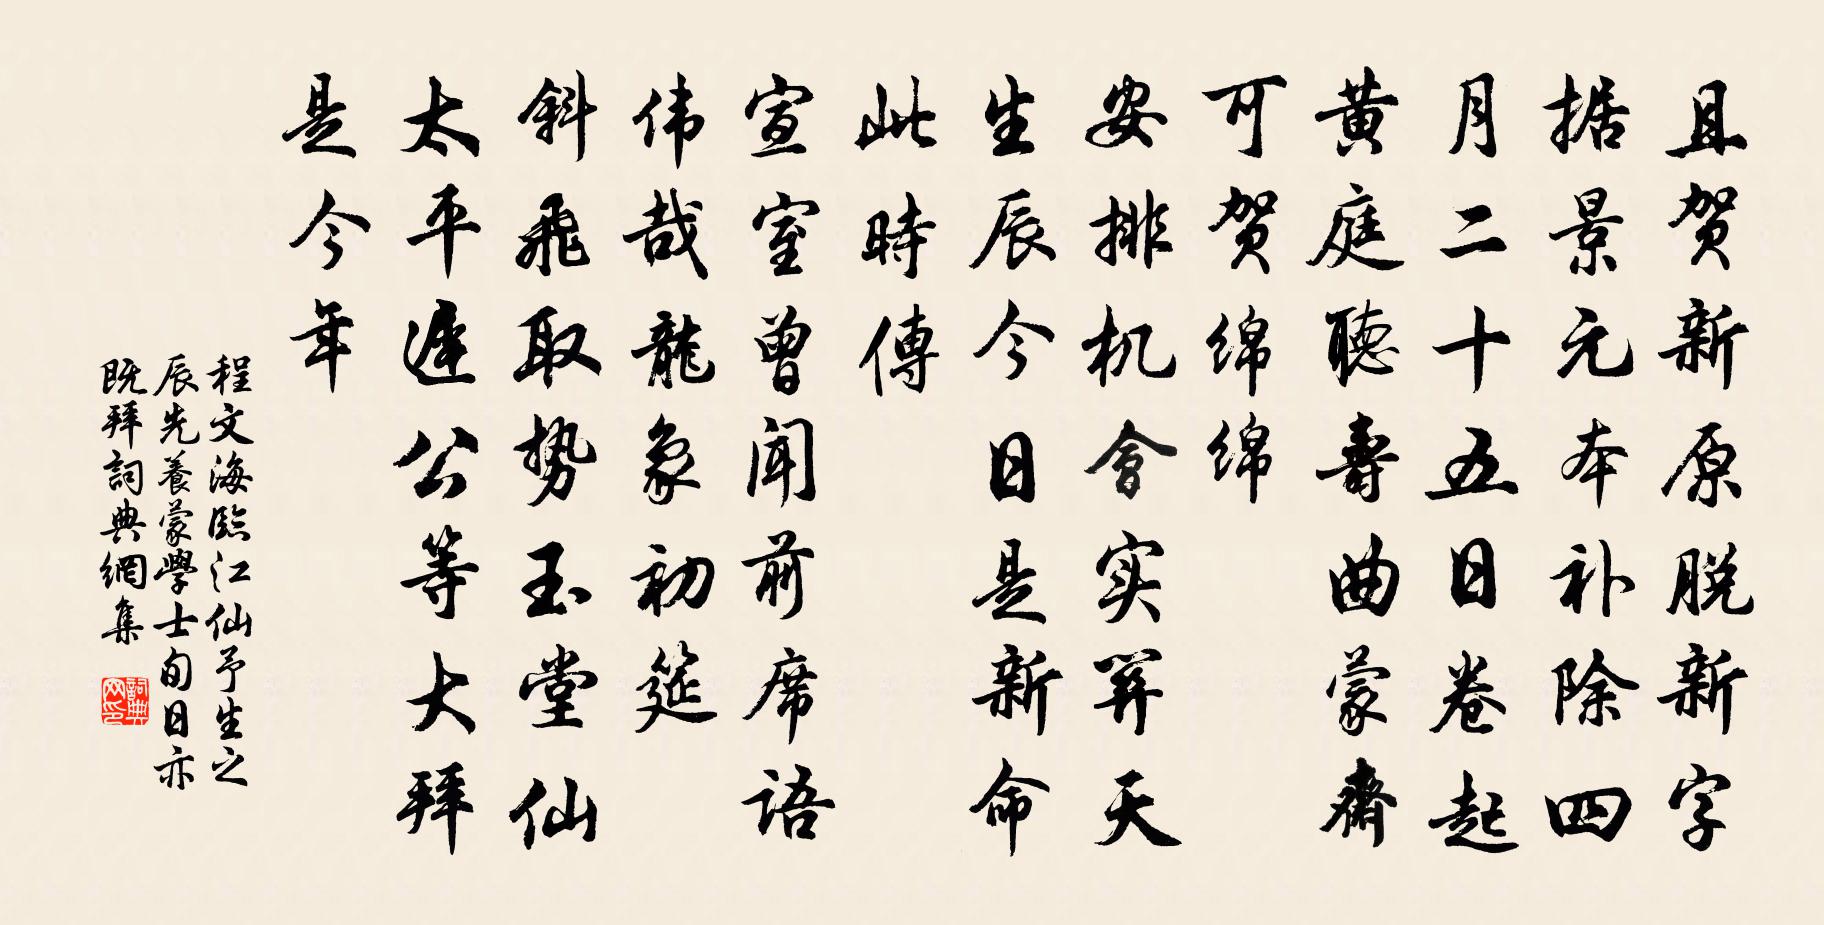 且贺新原脱新字
据景元本补除四
月二十五日卷起
黄庭聽壽曲蒙齋
可贺绵绵
安排机會实算天
生辰今日是新命
此時傳
宣室曾闻前席语
伟哉龍象初筵
斜飛取势玉堂仙
太平遲公等大拜
是今年
程文海臨江仙予生之
辰先養蒙學士旬日亦
既拜詞典網集
詞典網印